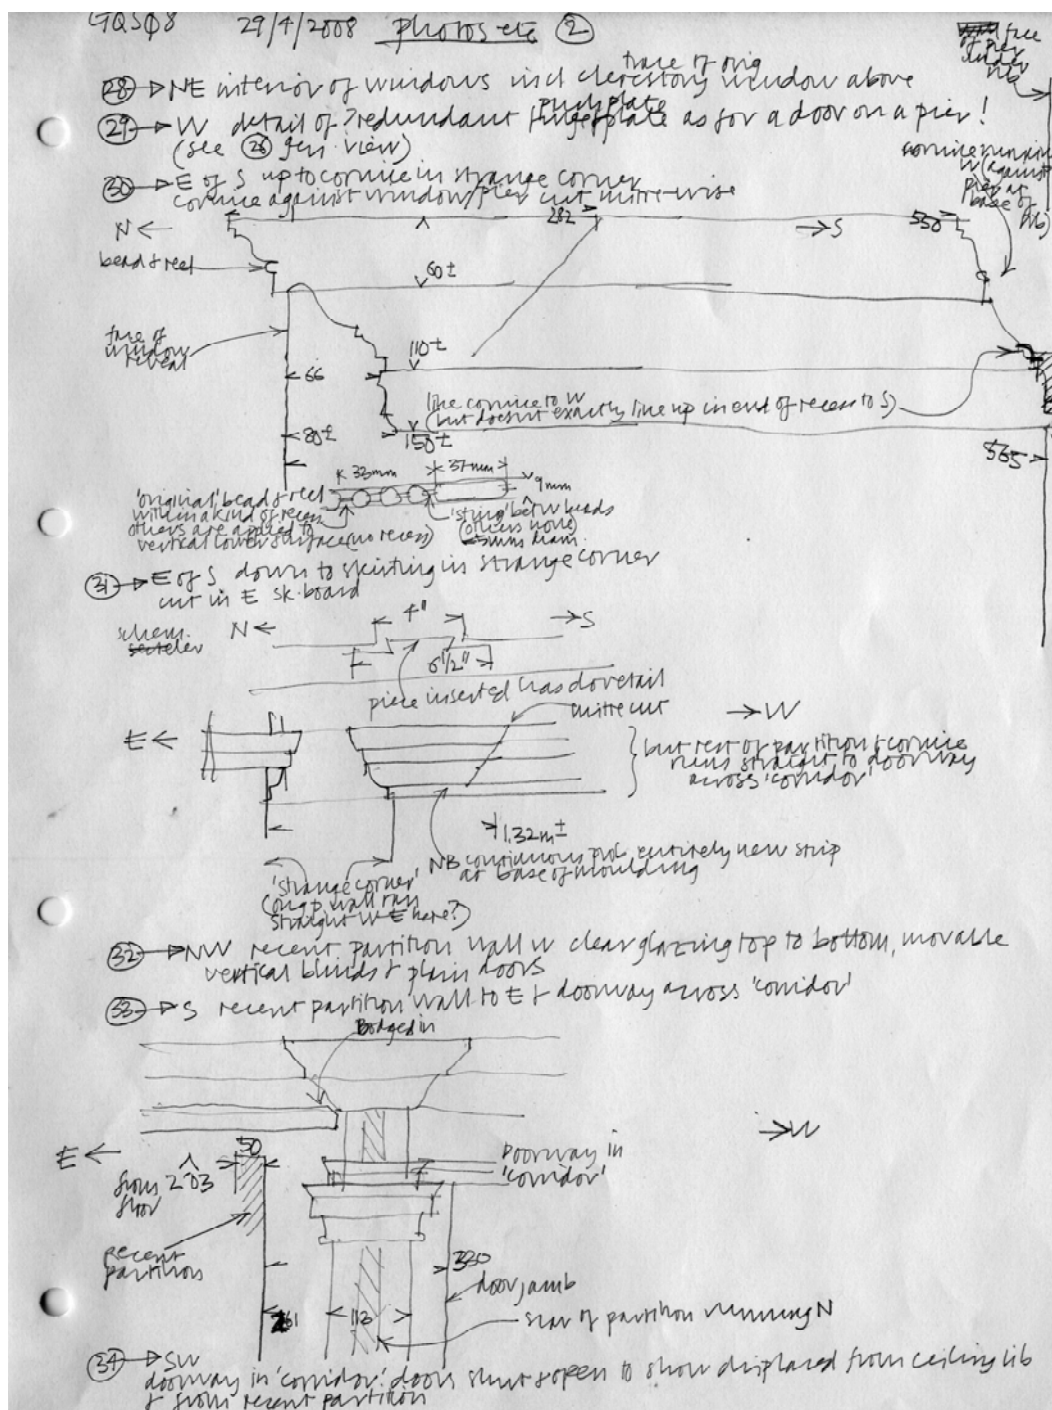 GQSQ8 29/4/2008 photos etc ②
face
of pier
under
rib
trace of orig
㉘→ NE interior of windows incl clerestory window above
pushplate
㉙→ W detail of ?redundant fingerplate as for a door on a pier!
(see ㉖ gen. view)
㉚→ E of S up to cornice in strange corner
cornice against window/pier cut mitre-wise
cornice running
W (against
pier at
base of
rib)
N ← 282 → S 550
bead & reel
60±
face of
window
reveal
110±
66
like cornice to W
(but doesn't exactly line up in end of recess to S)
80± 150±
565
33mm 37mm
9mm
'original' bead & reel
within a kind of recess
others are applied to
vertical lower surface (no recess)
'string' betw beads
(others none)
5mm diam.
㉛→ E of S down to skirting in strange corner
cut in E sk. board
4"
schem. N ← → S
6 1/2"
piece inserted has dovetail
mitre cut
E ← → W
but rest of partition & cornice
runs straight to doorway
across 'corridor'
1.32m±
NB continuous entirely new strip
at base of moulding
'strange corner'
(orig p. wall ran
straight W-E here?)
㉜→ NW recent partition wall w clear glazing top to bottom, movable
vertical blinds & plain doors
㉝→ S recent partition wall to E & doorway across 'corridor'
Bodged in
→ W
E ← 50
from 2·03
floor
doorway in
'corridor'
recent
partition
330
door jamb
261 113
scar of partition running N
㉞→ SW
doorway in 'corridor': doors shut & open to show displaced from ceiling rib
& from recent partition